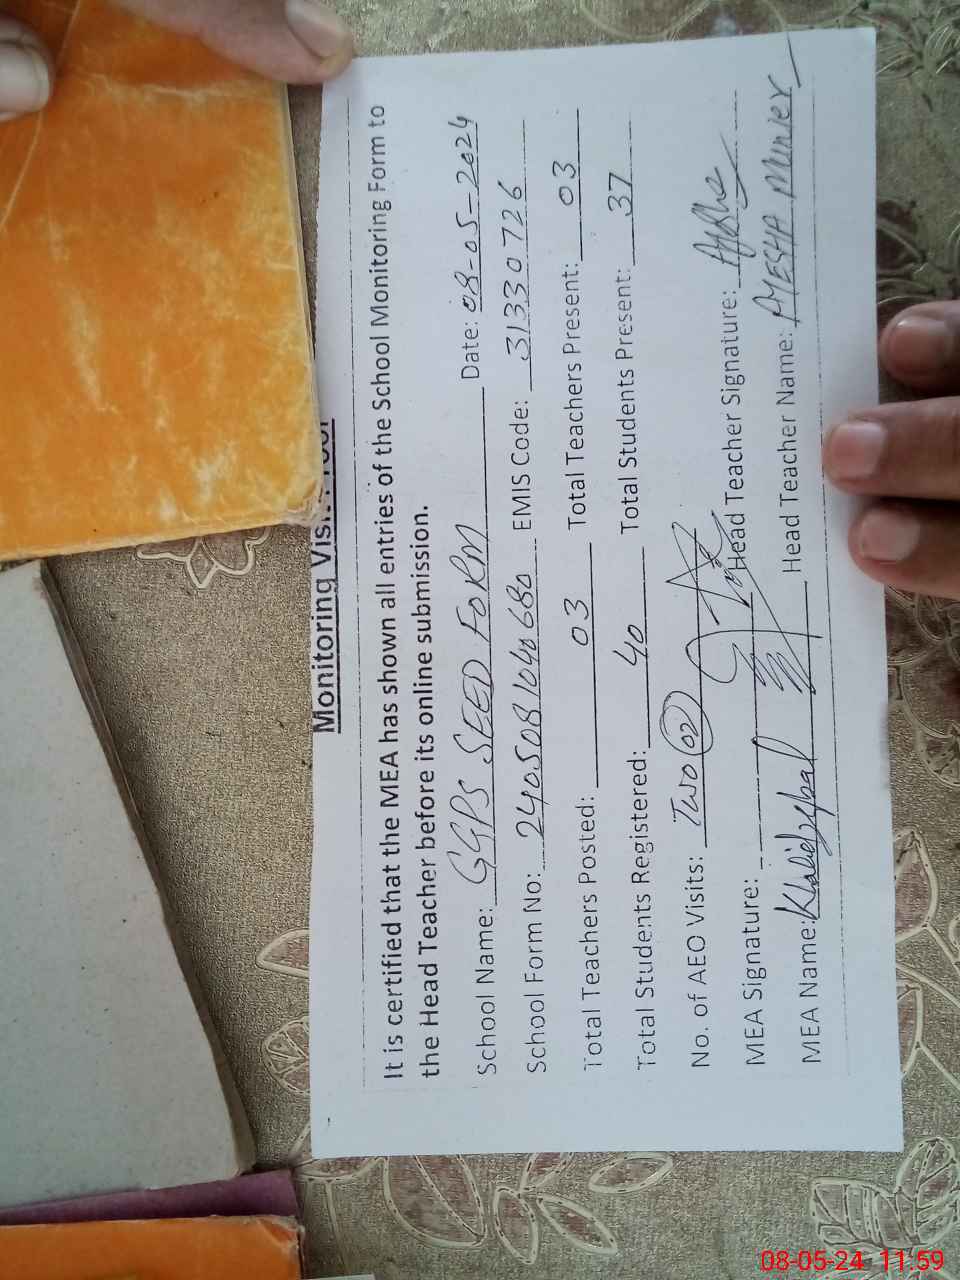 Monitoring Visit Proof
It is certified that the MEA has shown all entries of the School Monitoring Form to
the Head Teacher before its online submission.
School Name: GGPS SEED FORM Date: 08-05-2024
School Form No: 2405081040680 EMIS Code: 31330726
Total Teachers Posted: 03 Total Teachers Present: 03
Total Students Registered: 40 Total Students Present: 37
No. of AEO Visits: Two (02)
MEA Signature: Head Teacher Signature: Ayesha
MEA Name: Khalid Iqbal Head Teacher Name: AYESHA Muneer
08-05-24 11:59